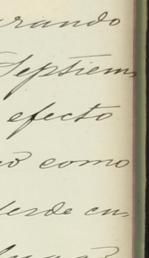 rando
Septiem
efecto
como
erde en